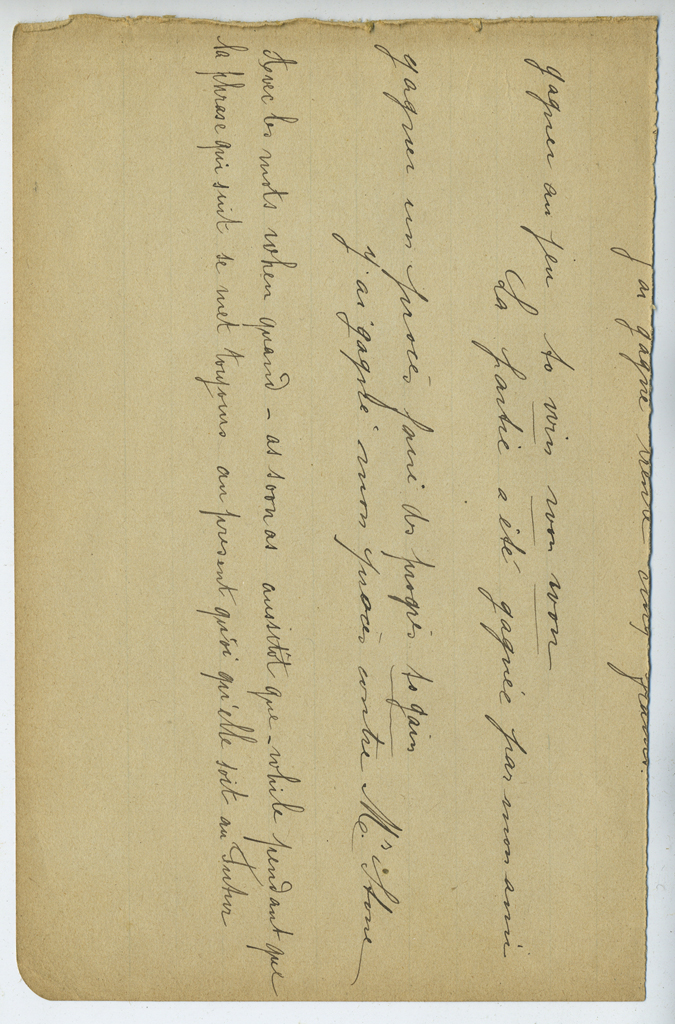 j'ai gagné trente cinq francs.
gagner au jeu to win won won
La partie a été gagnée par mon ami
gagner un procès faire des progrès to gain
J'ai gagné mon procès contre Mrs Stone
Avec les mots when quand - as soon as aussitôt que - while pendant que
la phrase qui suit se met toujours au present quoi qu'elle soit au Futur